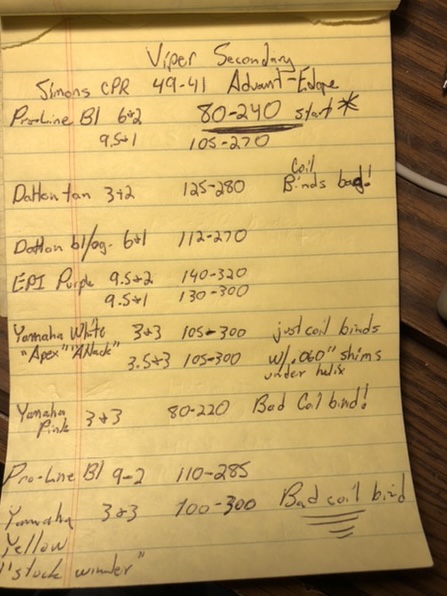 Viper Secondary
Simons CPR 49-41 Advant-Edge
Pro-Line Bl 6+2 80-240 start *
9.5+1 105-270
Dalton tan 3+2 125-280 Coil Binds bad!
Dalton bl/og. 6+1 112-270
EPI Purple 9.5+2 140-320
9.5+1 130-300
Yamaha White 3+3 105-300 just coil binds
"Apex" "Attack" 3.5+3 105-300 w/.060" shims
under helix
Yamaha Pink 3+3 80-220 Bad Coil bind!
Pro-Line Bl 9-2 110-285
Yamaha 3+3 100-300 Bad coil bind
Yellow
"stock winder"